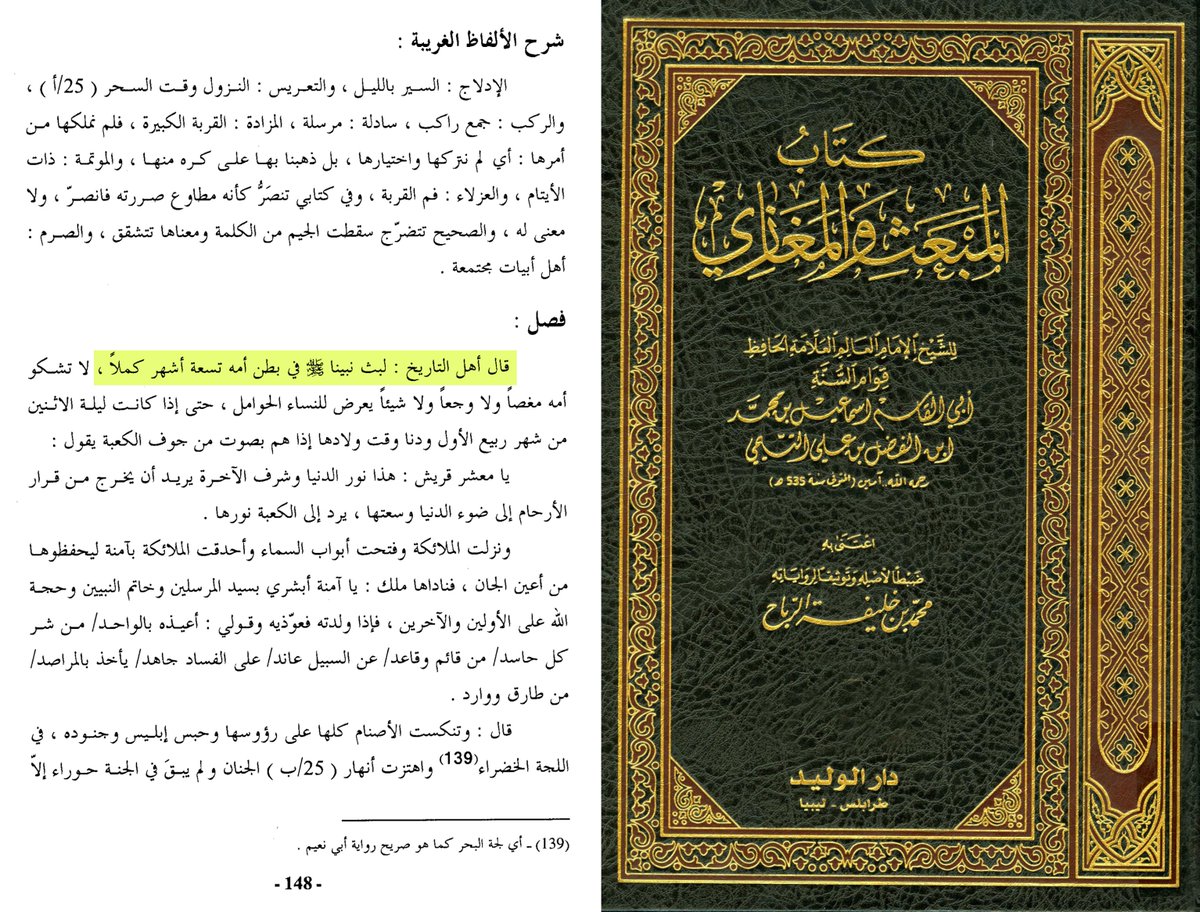 شرح الألفاظ الغريبة :
الإدلاج : السير بالليل ، والتعريس : النزول وقت السحر ( 25/أ ) ،
والركب : جمع راكب ، سادلة : مرسلة ، المزادة : القربة الكبيرة ، فلم نملكها من
أمرها : أي لم نتركها واختيارها ، بل ذهبنا بها على كره منها ، والموتمة : ذات
الأيتام ، والعزلاء : فم القربة ، وفي كتابي تنصَرُّ كأنه مطاوع صررته فانصرّ ، ولا
معنى له ، والصحيح تتضرّج سقطت الجيم من الكلمة ومعناها تتشقق ، والصرم :
أهل أبيات مجتمعة .
فصل :
قال أهل التاريخ : لبث نبينا ﷺ في بطن أمه تسعة أشهر كملاً ، لا تشكو
أمه مغصاً ولا وجعاً ولا شيئاً يعرض للنساء الحوامل ، حتى إذا كانت ليلة الاثنين
من شهر ربيع الأول ودنا وقت ولادها إذا هم بصوت من جوف الكعبة يقول :
يا معشر قريش : هذا نور الدنيا وشرف الآخرة يريد أن يخرج من قرار
الأرحام إلى ضوء الدنيا وسعتها ، يرد إلى الكعبة نورها .
ونزلت الملائكة وفتحت أبواب السماء وأحدقت الملائكة بآمنة ليحفظوها
من أعين الجان ، فناداها ملك : يا آمنة أبشري بسيد المرسلين وخاتم النبيين وحجة
الله على الأولين والآخرين ، فإذا ولدته فعوّذيه وقولي : أعيذه بالواحد/ من شر
كل حاسد/ من قائم وقاعد/ عن السبيل عاند/ على الفساد جاهد/ يأخذ بالمراصد/
من طارق ووارد .
قال : وتنكست الأصنام كلها على رؤوسها وحبس إبليس وجنوده ، في
اللجة الخضراء(139) واهتزت أنهار ( 25/ب ) الجنان ولم يبق في الجنة حوراء إلاّ
(139) ـ أي لجة البحر كما هو صريح رواية أبي نعيم .
- 148 -
كتاب
المبعث والمغازي
للشيخ الإمام العالم العلامة الحافظ
قوام السنة
أبي القاسم إسماعيل بن محمد
ابن الفضل بن علي التيمي
رحمه الله آمين (المتوفى سنة 535 هـ)
اعتنى به
ضبطاً لأصله وتوثيقاً لرواياته
محمد بن خليفة الرباح
دار الوليد
طرابلس - ليبيا